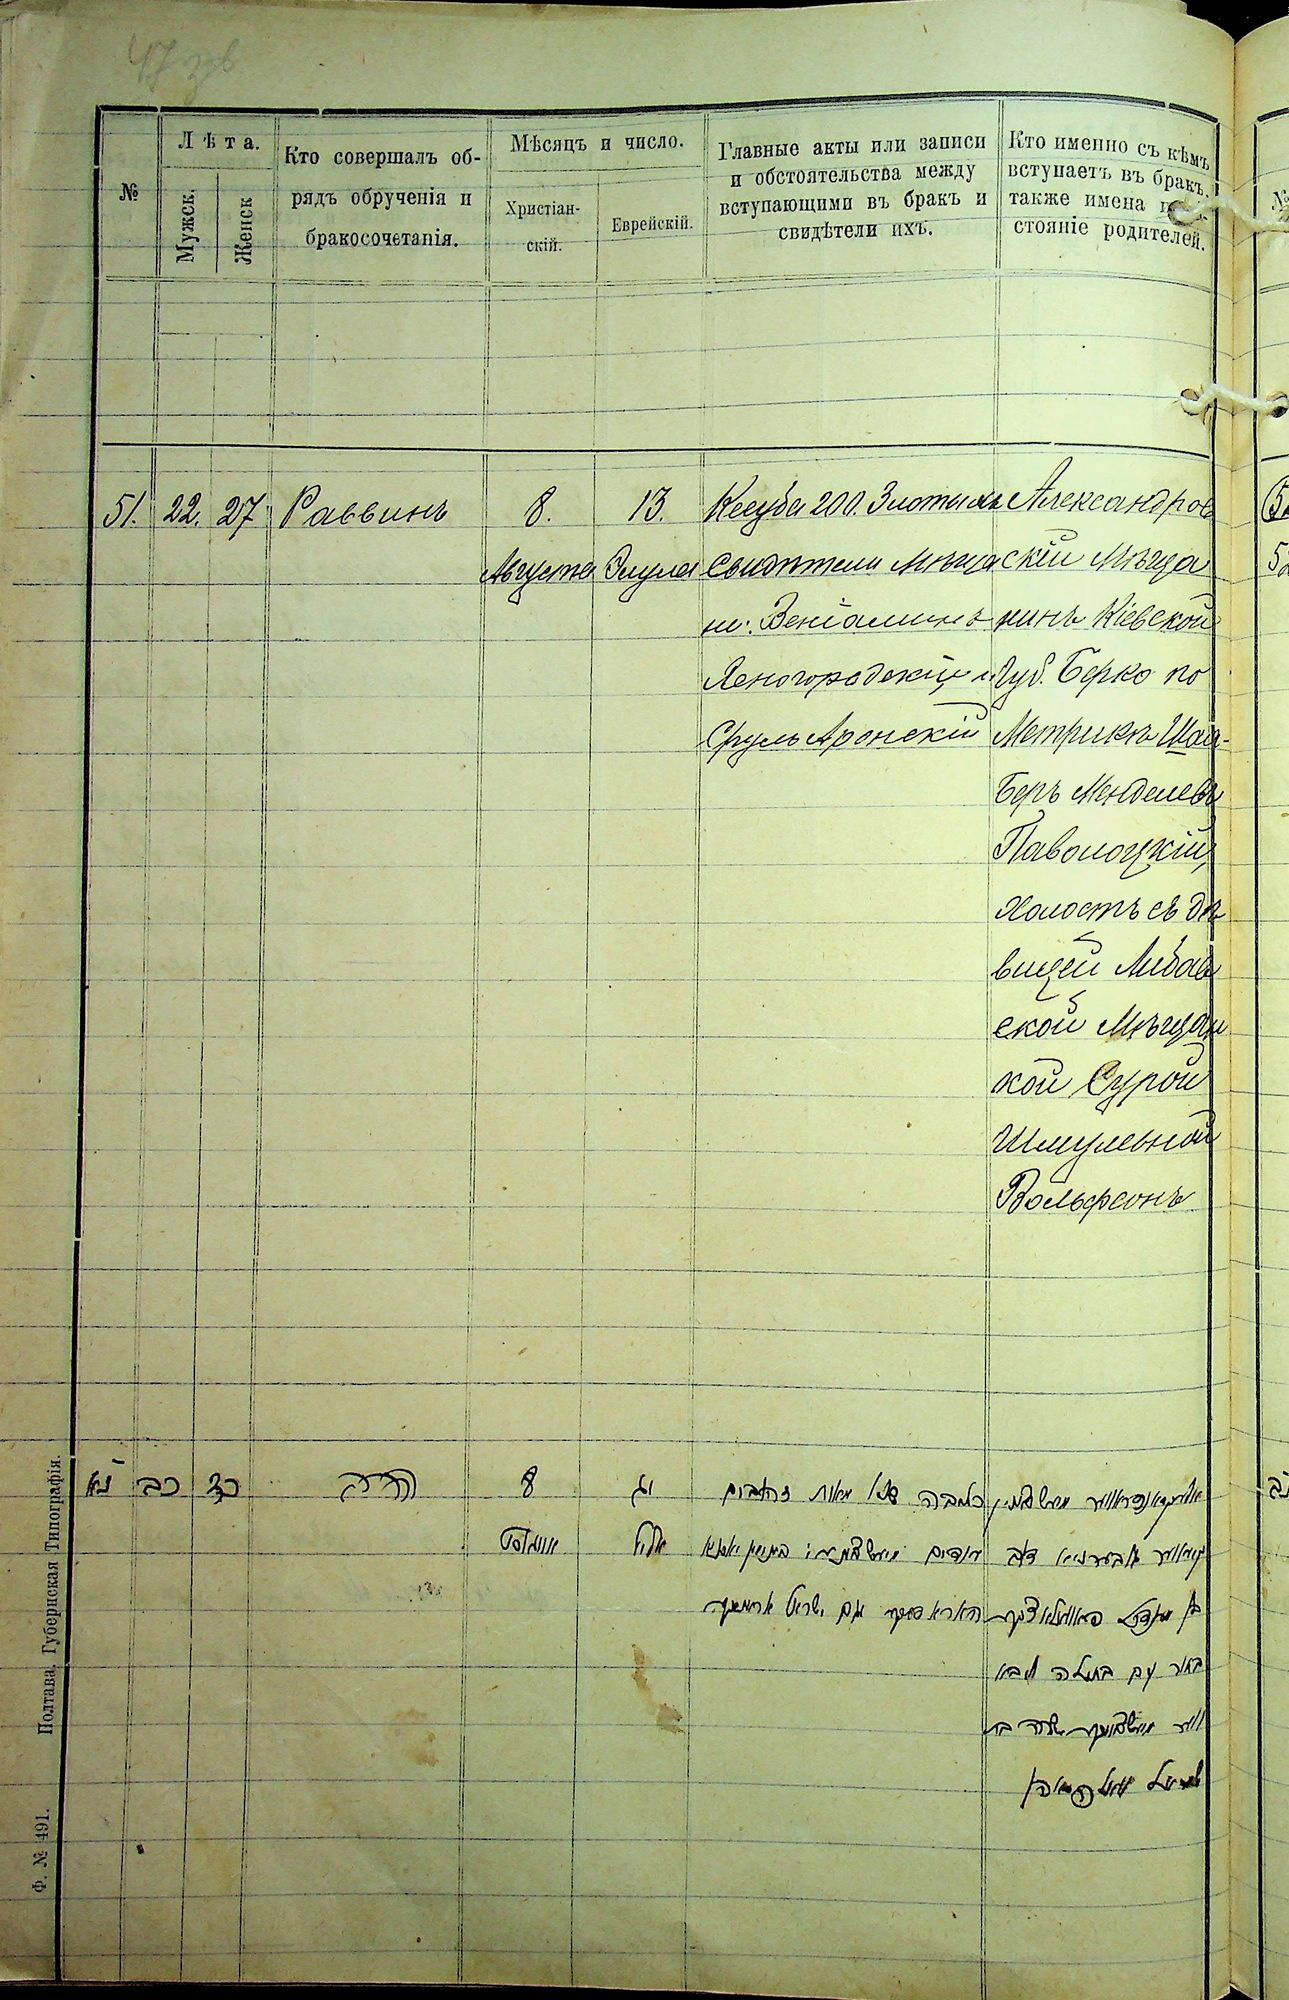 47 зв
№
Лѣта.
Мужск.
Женск
Кто совершалъ об-
рядъ обрученія и
бракосочетанія.
Мѣсяцъ и число.
Христіан-
скій.
Еврейскій.
Главные акты или записи
и обстоятельства между
вступающими въ бракъ и
свидѣтели ихъ.
Кто именно съ кѣмъ
вступаетъ въ бракъ,
также имена и
стояніе родителей.
51. 22. 27 Раввинъ
8.
Августа
13.
Элула
Ксуба 200. Злотыхъ
Свидѣтели Мѣща
не: Веніаминъ
Ясногородскій и
Сруль Аронскій
Александров
скій Мѣща
нинъ Кіевской
Губ. Берко по
Метрикѣ Шая-
Беръ Менделевъ
Паволоцкій,
Холостъ съ дѣ
вицей Либав
ской Мѣщан
кой Сурой
Шмулевной
Вольфсонъ
נא כב כז
8
אווגוסט
יג
אלול
כתובה מאות זהובים
עדים
ישראל
דוב
בן מענדל
בחור עם בתולה ליבא
שרה בת
Полтава. Губернская Типографія.
Ф. № 491.